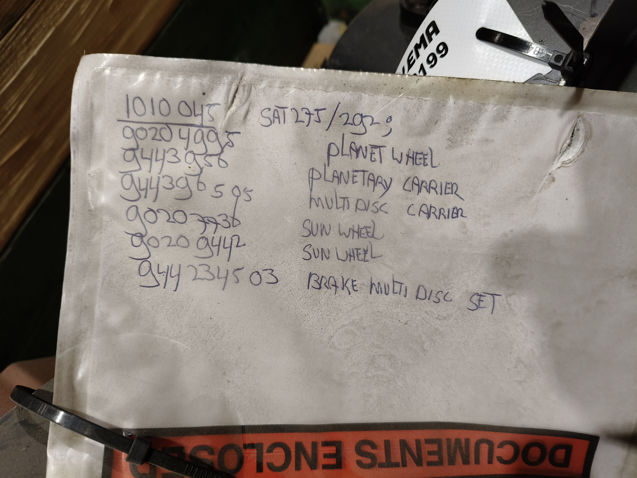 LEMA
199
1010 045 SAT 275/292;
9020 4995 PLANET WHEEL
9443956 PLANETARY CARRIER
944396595 MULTI DISC CARRIER
9020 7736 SUN WHEEL
9020 9442 SUN WHEEL
944 234503 BRAKE MULTI DISC SET
DOCUMENTS ENCLOSED